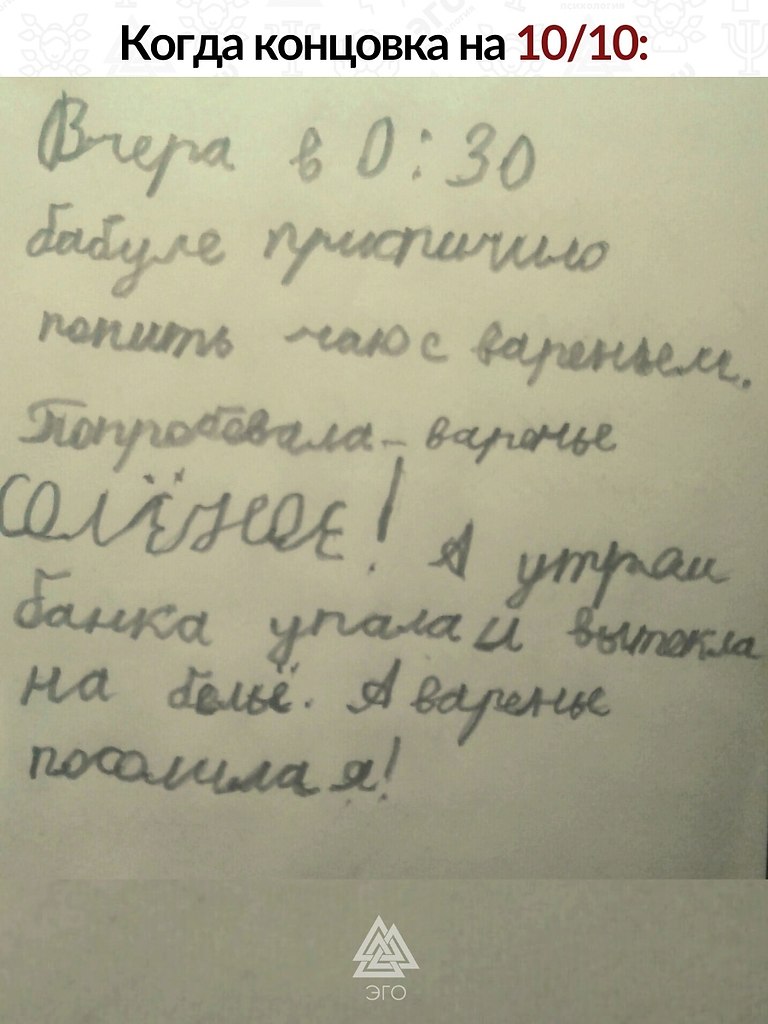 Когда концовка на 10/10:
Вчера в 0:30
бабуле приспичило
попить чаю с вареньем.
Попробовала – варенье
СОЛЁНОЕ! А утром
банка упала и вытекла
на бельё. А варенье
посолила я!
ЭГО